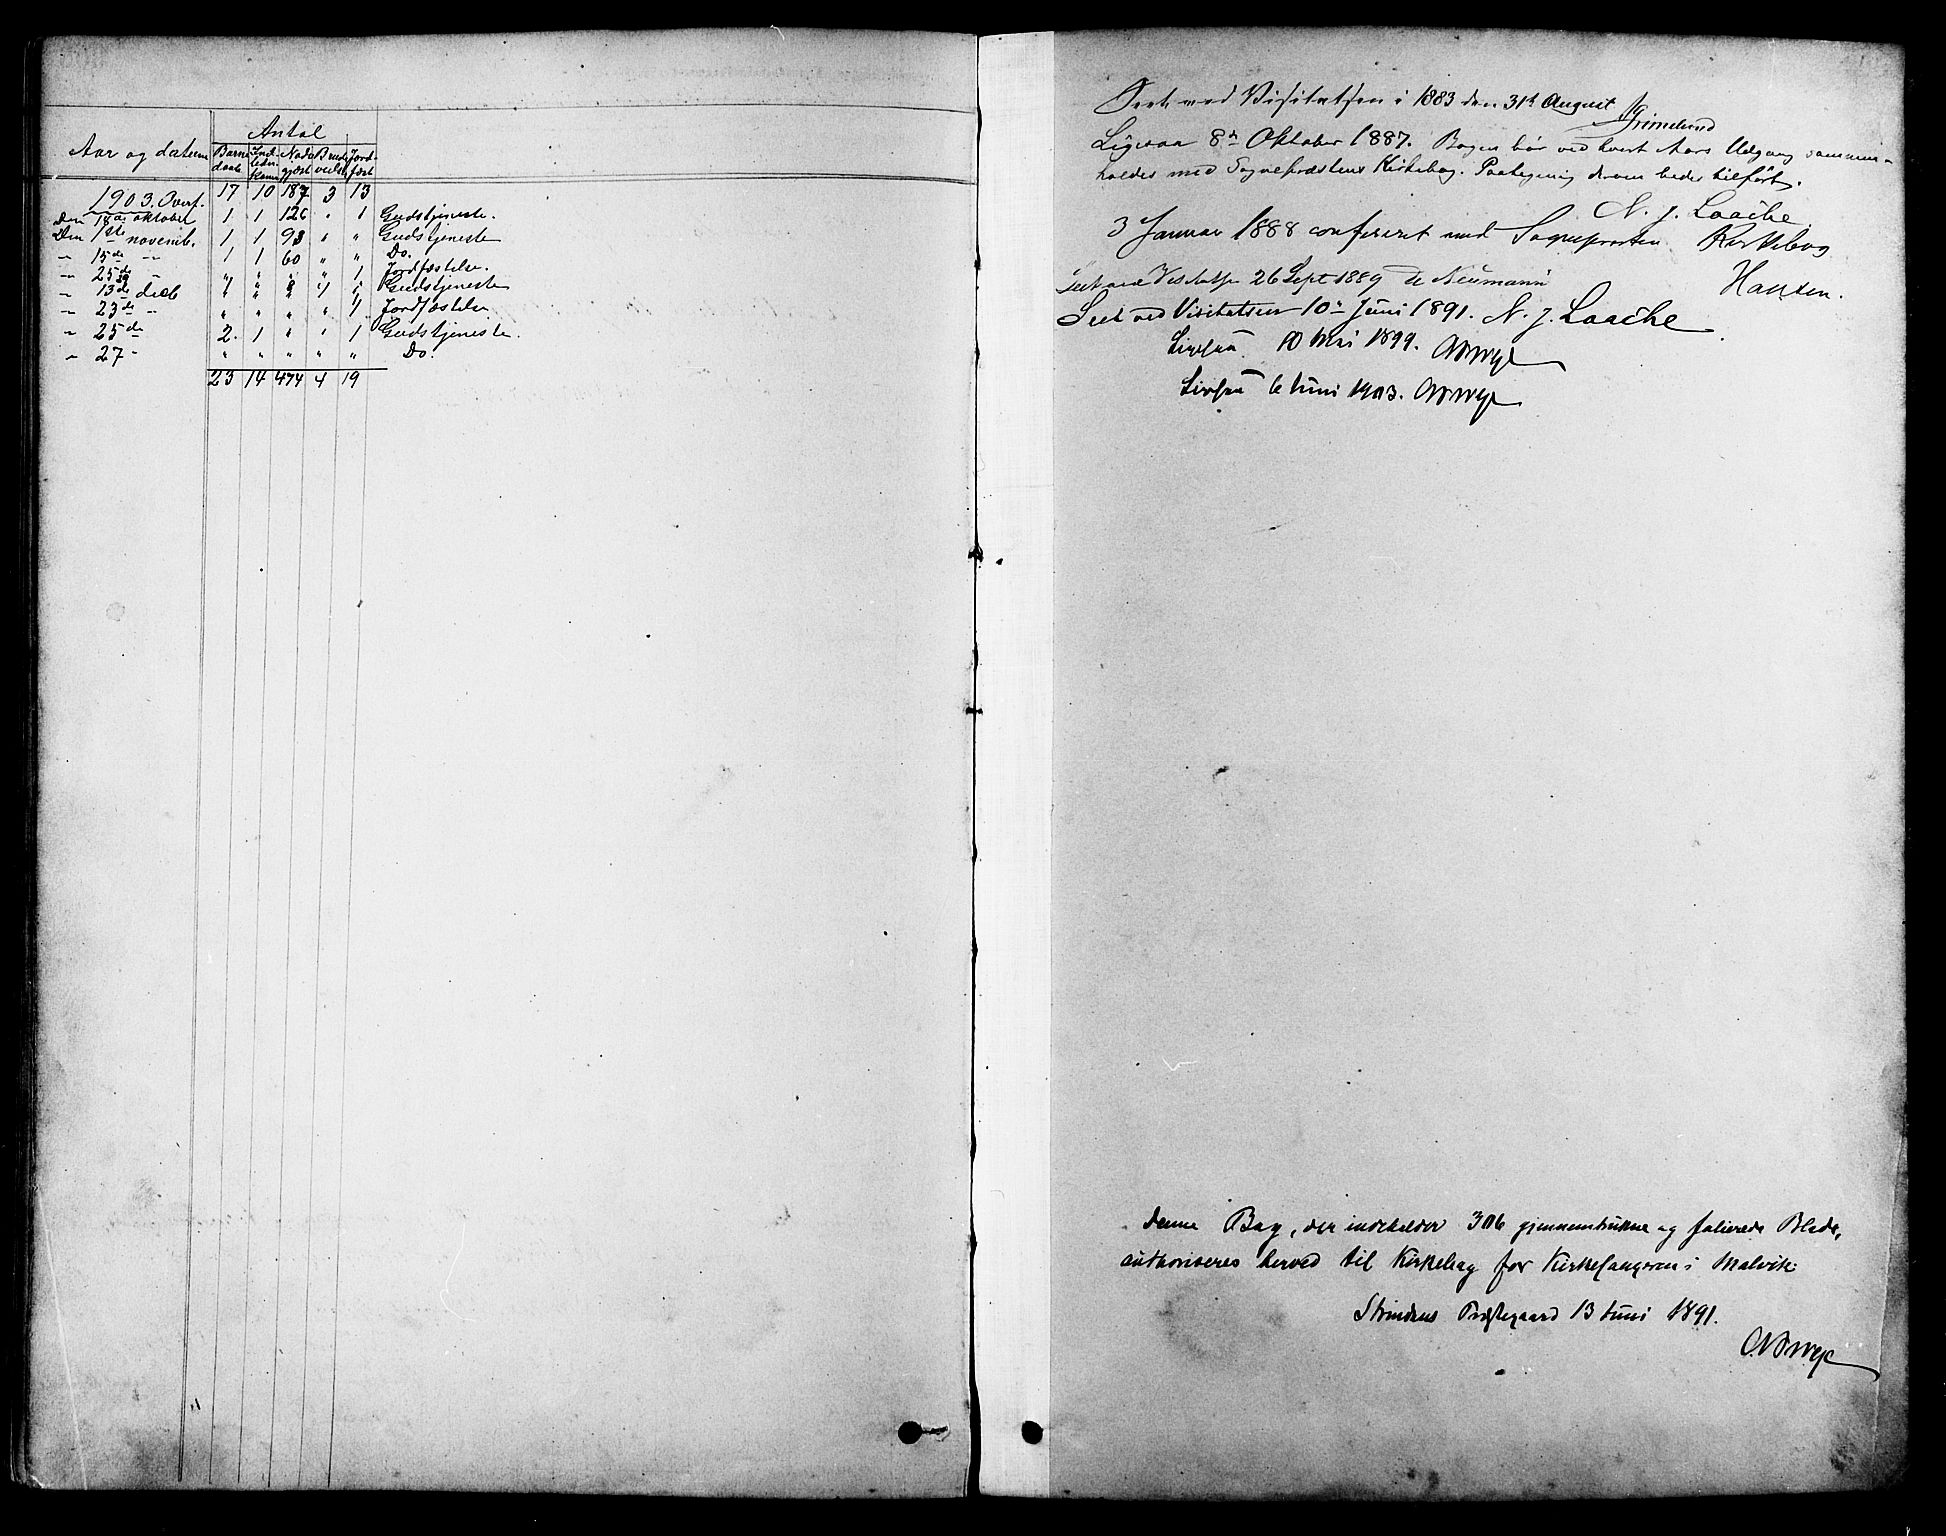 Antal
Aar og daterne Barne daab Ind ledn. Kone Nadv gjæst Brude vielse Jord fæst
1903. Overf. 17 10 187 3 13
Den 18de oktober 1 1 126 " 1 Gudstjeneste.
Den 1ste novemb. 1 1 93 " " Gudstjeneste
" 15de " 1 1 60 " " Do.
" 25de " " " " " 1 Jordfæstelse.
" 13de decb 1 " 8 1 1 Gudstjeneste
" 23de " " " " " 1 Jordfæstelse
" 25de 2 1 " " 1 Gudstjeneste.
" 27 " " " " " " Do.
23 14 474 4 19
Seet ved Visitatsen i 1883 den 31te August
Grimelund
Ligesaa 8de Oktober 1887. Bogen bør ved hvert Aars Udgang sammen-
holdes med Sognepræstens Kirkebog. Paategning derom bedes tilført.
N. J. Laache
3 Januar 1888 confereret med Sognepræsten Kirkebog
Hansen.
Seet ved Visitatsen 26 Sept 1889 de Neumann
Seet ved Visitatsen 10de Juni 1891. N. J. Laache
Ligesaa 10 Mai 1899.
Ligesaa 6 Juni 1903.
Denne Bog, der indeholder 306 gjennemtrukne og folierede Blade,
authoriseres herved til Kirkebog for Kirkesangeren i Malvik
Strindens Præstegaard 13 Juni 1891.